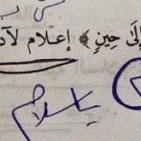 إِلَى حِينٍ ﴾ إعلام لآد
يا سلام